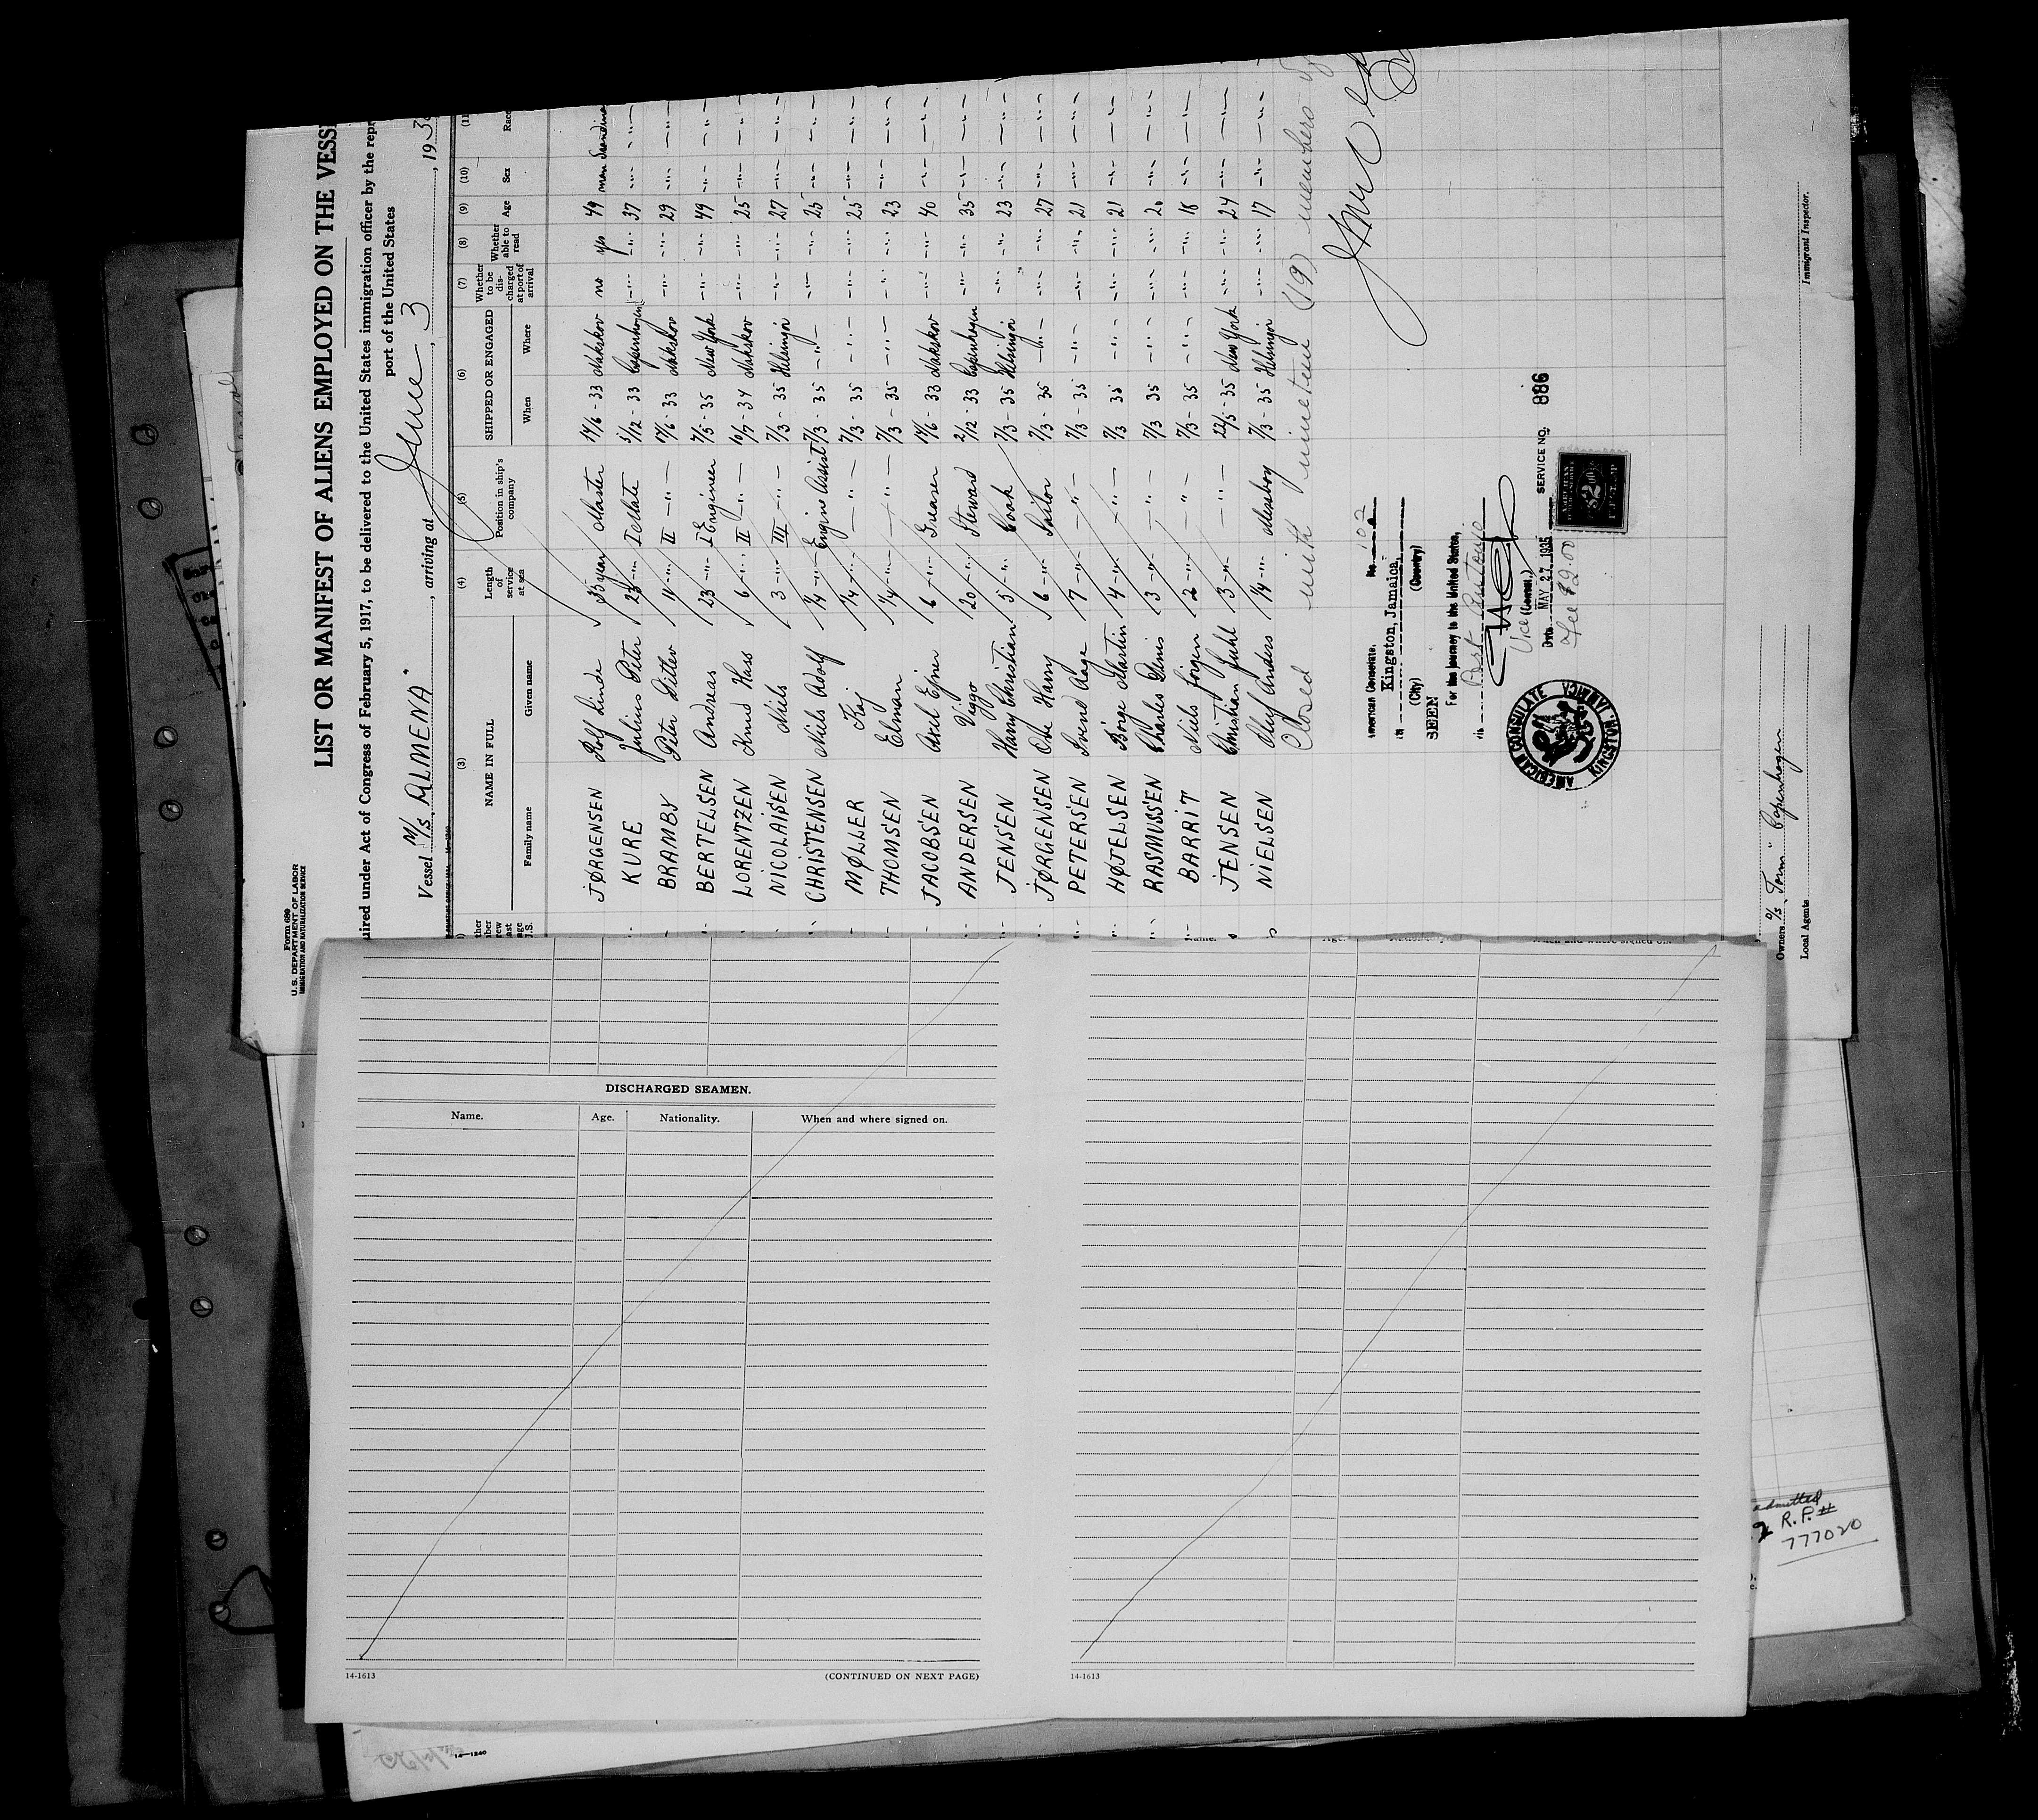 Form 680
U. S. DEPARTMENT OF LABOR
IMMIGRATION AND NATURALIZATION SERVICE
LIST OR MANIFEST OF ALIENS EMPLOYED ON THE VESS
uired under Act of Congress of February 5, 1917, to be delivered to the United States immigration officer by the repr
port of the United States
Vessel M/S "ALMENA", arriving at June 3, 193
(3) (4) (5) (6) (7) (8) (9) (10) (11
NAME IN FULL
Family name Given name
Length of service at sea
Position in ship's company
SHIPPED OR ENGAGED
When Where
Whether to be discharged at port of arrival
Whether able to read
Age
Sex
Race
JØRGENSEN Rolf Linde 35 year Master 14/6 - 33 Nakskov no yes 49 man Scandina
KURE Julius Peter 23 -"- I Mate 5/12 - 33 Copenhagen -"- -"- 37 -"- -"-
BRAMBY Peter Ditlev 11 -"- II -"- 14/6 - 33 Nakskov -"- -"- 29 -"- -"-
BERTELSEN Andreas 23 -"- I Engineer 7/5 - 35 New York -"- -"- 49 -"- -"-
LORENTZEN Knud Hass 6 -"- II -"- 10/7 - 34 Nakskov -"- -"- 25 -"- -"-
NICOLAISEN Niels 3 -"- III -"- 7/3 - 35 Helsingør -"- -"- 27 -"- -"-
CHRISTENSEN Niels Adolf 1/4 -"- Engine Assist 7/3 - 35 -"- -"- -"- 25 -"- -"-
MØLLER Kaj 1/4 -"- -"- 7/3 - 35 -"- -"- -"- 25 -"- -"-
THOMSEN Elman 1/4 -"- -"- 7/3 - 35 -"- -"- -"- 23 -"- -"-
JACOBSEN Axel Ejner 6 -"- Greaser 14/6 - 33 Nakskov -"- -"- 40 -"- -"-
ANDERSEN Viggo 20 -"- Steward 2/12 - 33 Copenhagen -"- -"- 35 -"- -"-
JENSEN Harry Christian 5 -"- Cook 7/3 - 35 Helsingør -"- -"- 23 -"- -"-
JØRGENSEN Ove Harry 6 -"- Sailor 7/3 - 35 -"- -"- -"- 27 -"- -"-
PETERSEN Svend Aage 7 -"- -"- 7/3 - 35 -"- -"- -"- 21 -"- -"-
HØJELSEN Børge Martin 4 -"- -"- 7/3 35 -"- -"- -"- 21 -"- -"-
RASMUSSEN Charles 3 -"- -"- 7/3 35 -"- -"- -"- 20 -"- -"-
BARRIT Niels Jörgen 2 -"- -"- 7/3 - 35 -"- -"- -"- 18 -"- -"-
JENSEN Christian Juhl 3 -"- -"- 22/5 - 35 New York -"- -"- 24 -"- -"-
NIELSEN Anders 1/4 -"- Messboy 7/3 - 35 Helsingør -"- -"- 17 -"- -"-
Closed with nineteen (19) members of
American Consulate. No. 102
in Kingston, Jamaica,
(City) (Country)
SEEN
For the journey to the United States,
in Port Antonio
Vice (Consul.)
Date MAY 27 1935 SERVICE NO. 886
Fee $2.00
AMERICAN CONSULATE KINGSTON, JAMAICA
Owners A/S "Torm" Copenhagen
Local Agents
Immigrant Inspector.
DISCHARGED SEAMEN.
Name. Age. Nationality. When and where signed on.
14-1613 (CONTINUED ON NEXT PAGE)
14-1613
admitted
R.P.#
777020
14—1240